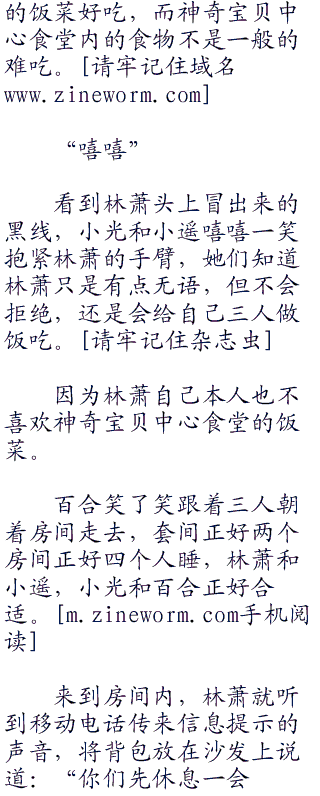 的饭菜好吃，而神奇宝贝中
心食堂内的食物不是一般的
难吃。[请牢记住域名
www.zineworm.com]
“嘻嘻”
看到林萧头上冒出来的
黑线，小光和小遥嘻嘻一笑
抱紧林萧的手臂，她们知道
林萧只是有点无语，但不会
拒绝，还是会给自己三人做
饭吃。[请牢记住杂志虫]
因为林萧自己本人也不
喜欢神奇宝贝中心食堂的饭
菜。
百合笑了笑跟着三人朝
着房间走去，套间正好两个
房间正好四个人睡，林萧和
小遥，小光和百合正好合
适。[m.zineworm.com手机阅
读]
来到房间内，林萧就听
到移动电话传来信息提示的
声音，将背包放在沙发上说
道：“你们先休息一会